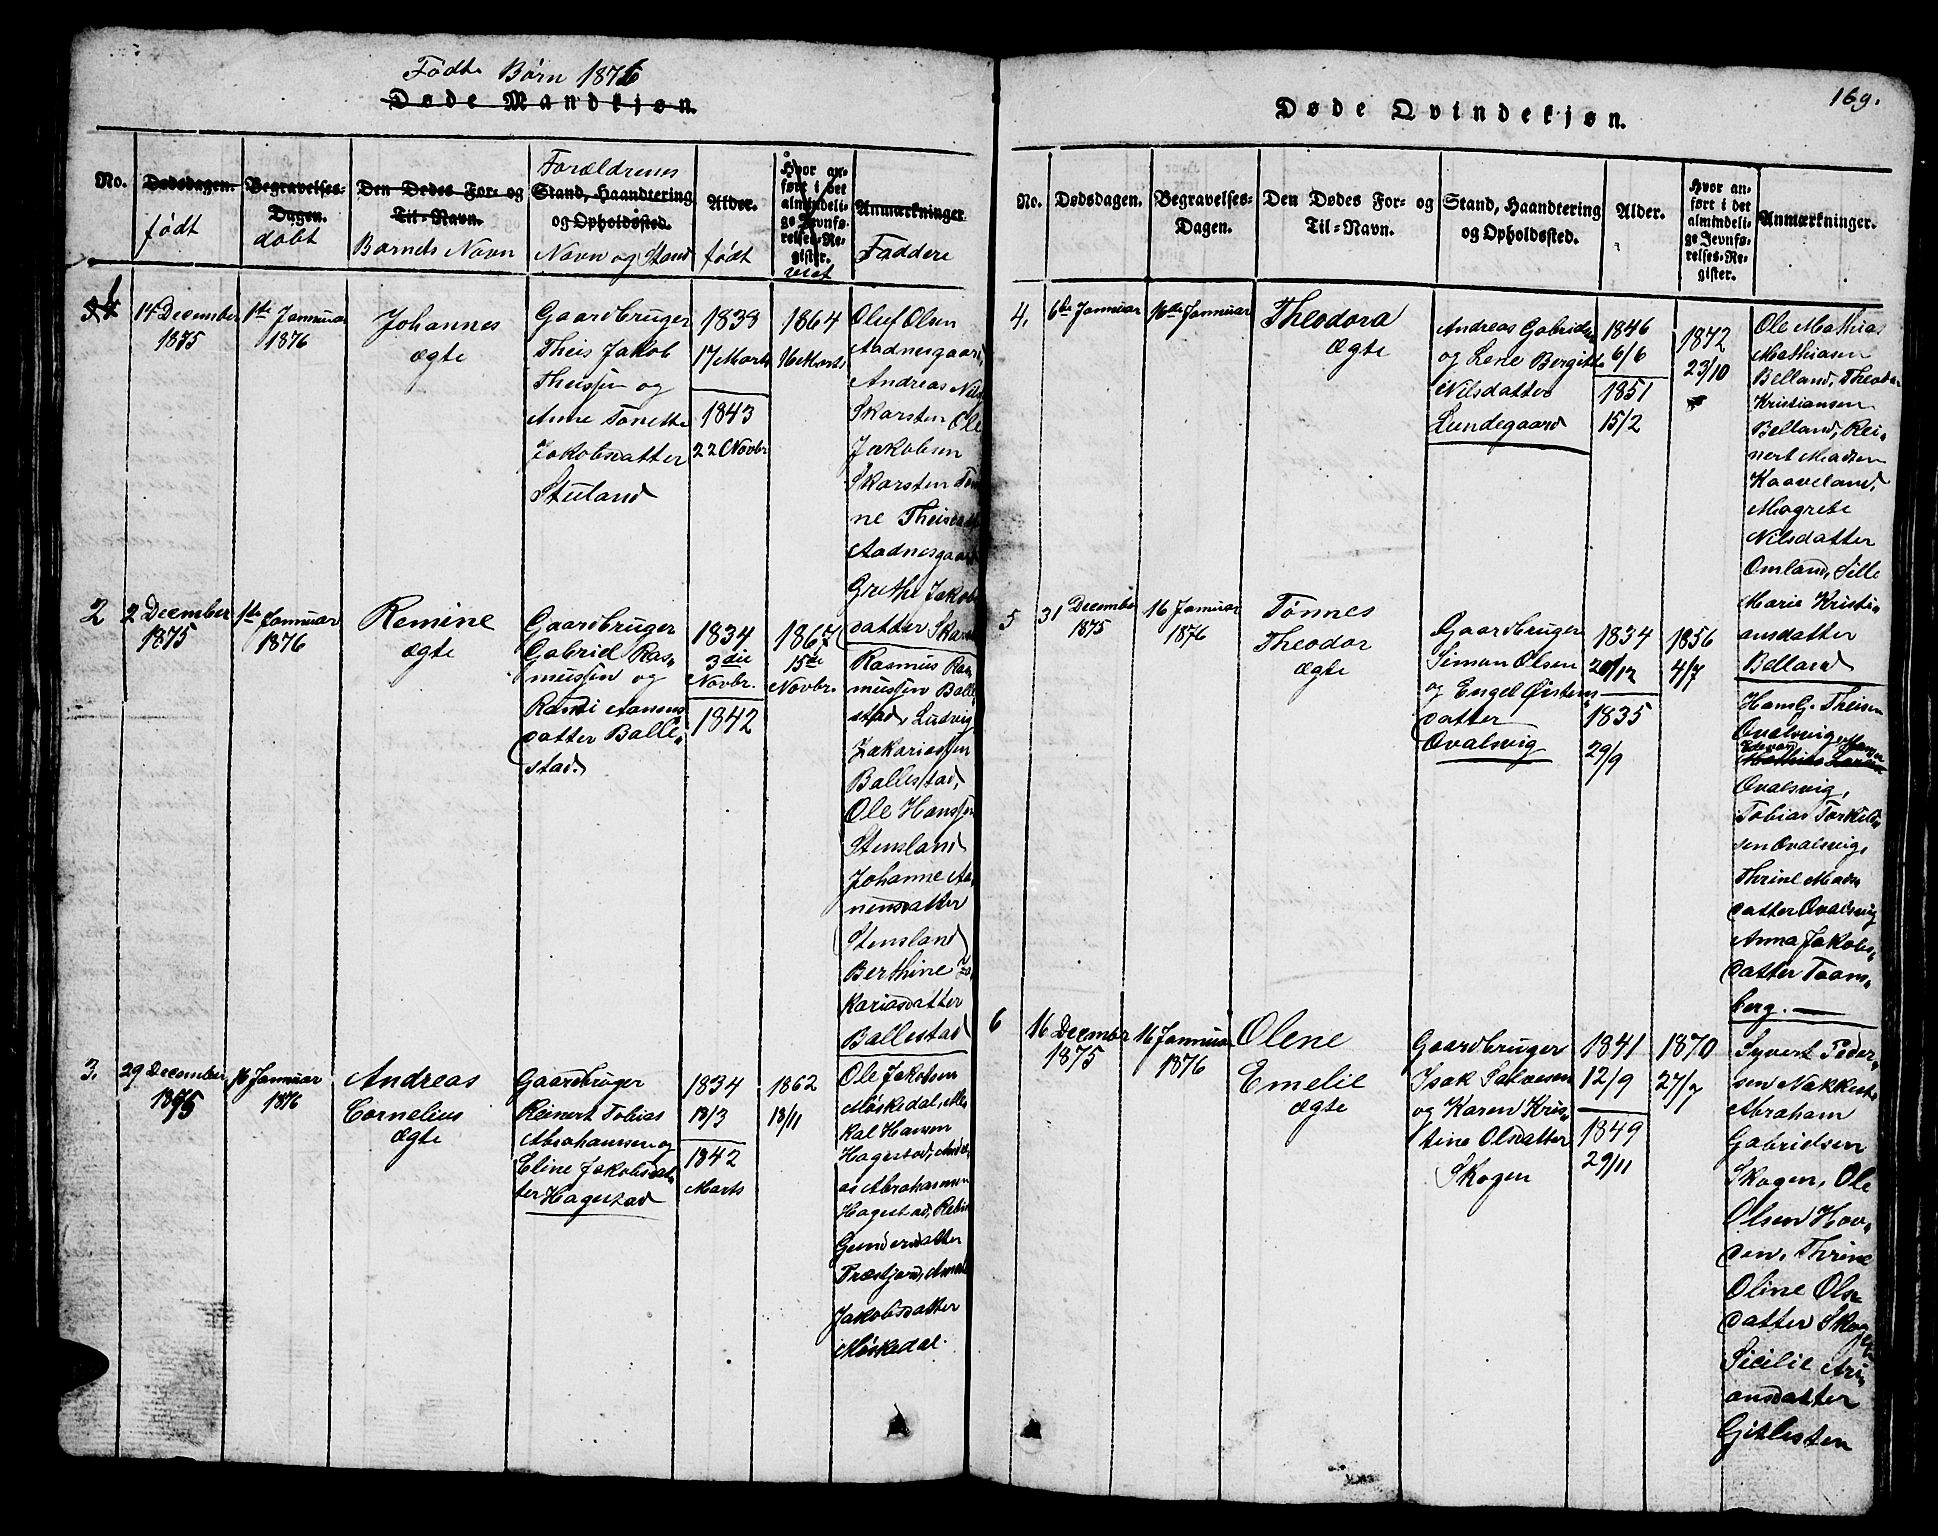 Fødte Børn 1876
Døde Mandkjøn.
No.
Dødsdagen.
født
Begravelses-
Dagen.
døbt
Den Dødes For- og
Til-Navn.
Barnets Navn
Forældrenes
Stand, Haandtering
og Opholdssted.
Navn og Stand
Alder.
født
Hvor an-
ført i det
almindeli-
ge Jevnfø-
relses-Re-
gister.
Anmærkninger
Faddere
1
14 December
1875
1ste Januar
1876
Johannes
ægte
Gaardbruger
Theis Jakob
Theissen og
Anne Tonette
Jakobsdatter
Stuland
1838
17 Marts
1843
22 Novbr.
1864
16 Marts
Oluf Olsen
Aadnesgaard
Andreas Nils
Skarsten Ole
Jakobsen
Skarsten Ton
ne Theisdatt
Aadnesgaard
Grethe Jakobs
datter Skarst
2
2 December
1875
1ste Januar
1876
Remine
ægte
Gaardbruger
Gabriel Ras-
mussen og
Randi Aanens
datter Balle-
stad.
1834
3die
Novbr.
1842
1867
15de
Novbr.
Rasmus Ras
mussen Balle
stad, Ludvig
Zakariassen
Ballestad,
Ole Hanssen
Stensland
Johanne Aa-
nensdatter
Stensland
Berthine Za-
kariasdatter
Ballestad
3.
29 December
1875
16 Januar
1876
Andreas
Cornelius
ægte
Gaardbruger
Reinert Tobias
Abrahamsen og
Eline Jakobsdat
ter Hagestad
1834
13/3
1842
Marts
1862
13/11
Ole Jakobsen
Møskedal,
Hansen
Hagestad,
as Abrahamsen
Hagestad,
Gundersdatter
Træstjørd,
Jakobsdatter
Møskedal.
169.
Døde Qvindekjøn.
No.
Dødsdagen.
Begravelses-
Dagen.
Den Dødes For- og
Til-Navn.
Stand, Haandtering
og Opholdssted.
Alder.
Hvor an-
ført i det
almindeli-
ge Jevnfø-
relses-Re-
gister.
Anmærkninger.
4.
6te Januar
16de Januar
Theodora
ægte
Andreas Gabriels
og Lene Bergitte
Nilsdatter
Lundegaard
1846
6/6
1851
15/2
1872
23/10
Ole Mathias
Mathiasen
Belland, Theodor
Kristiansen
Belland, Rei-
nert Madsen
Kaaveland,
Magrete
Nilsdatter
Omland, Sille
Marie Kristi-
ansdatter
Belland
5
31 December
1875
16 Januar
1876
Tønnes
Theodor
ægte
Gaardbruger
Simon Olsen
og Engel Østens-
datter
Ovalsvig
1834
20/12
1835
29/9
1856
4/7
Hans G. Theisen
Ovalsvig,
Ovalsvig,
Tobias Torkild-
sen Ovalsvig,
Thrine Mads-
datter Ovalsvig
Anna Jakobs-
datter Toams-
berg.
6
16 December
1875
16 Januar
1876
Olene
Emelie
ægte
Gaardbruger
Isak Salvesen
og Karen Kris-
tine Olsdatter
Skogen
1841
12/9
1849
29/11
1870
27/7
Syvert Peder-
sen Nakkest
Abraham
Gabrielsen
Skogen, Ole
Olsen Hov-
den, Thrine
Oline Ols-
datter Skogen
Sicilie Ari-
ansdatter
Gitlesten